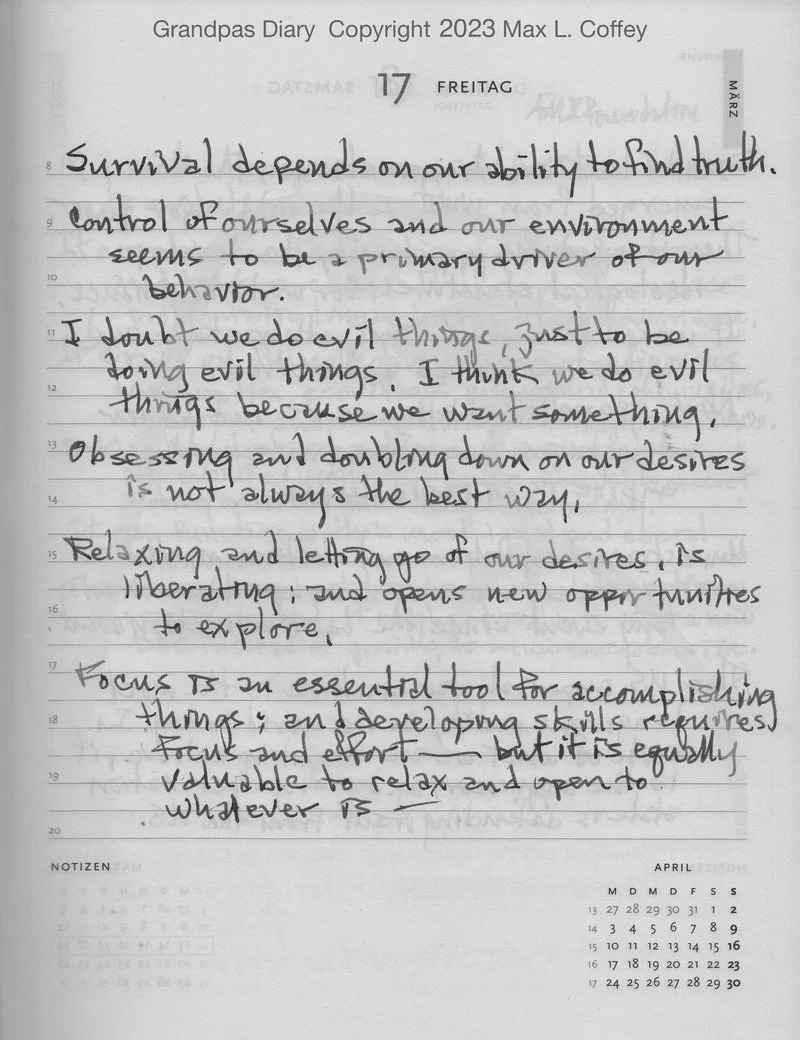 Grandpas Diary Copyright 2023 Max L. Coffey
17 FREITAG
MÄRZ
8 Survival depends on our ability to find truth.
9 Control of ourselves and our environment
seems to be a primary driver of our
10 behavior.
11 I doubt we do evil things, just to be
doing evil things. I think we do evil
12 things because we want something.
13 Obsessing and doubling down on our desires
14 is not always the best way.
15 Relaxing and letting go of our desires, is
liberating; and opens new opportunities
16 to explore.
17 Focus is an essential tool for accomplishing
18 things; and developing skills requires
focus and effort — but it is equally
19 valuable to relax and open to
whatever is —
20
NOTIZEN
APRIL
M D M D F S S
13 27 28 29 30 31 1 2
14 3 4 5 6 7 8 9
15 10 11 12 13 14 15 16
16 17 18 19 20 21 22 23
17 24 25 26 27 28 29 30